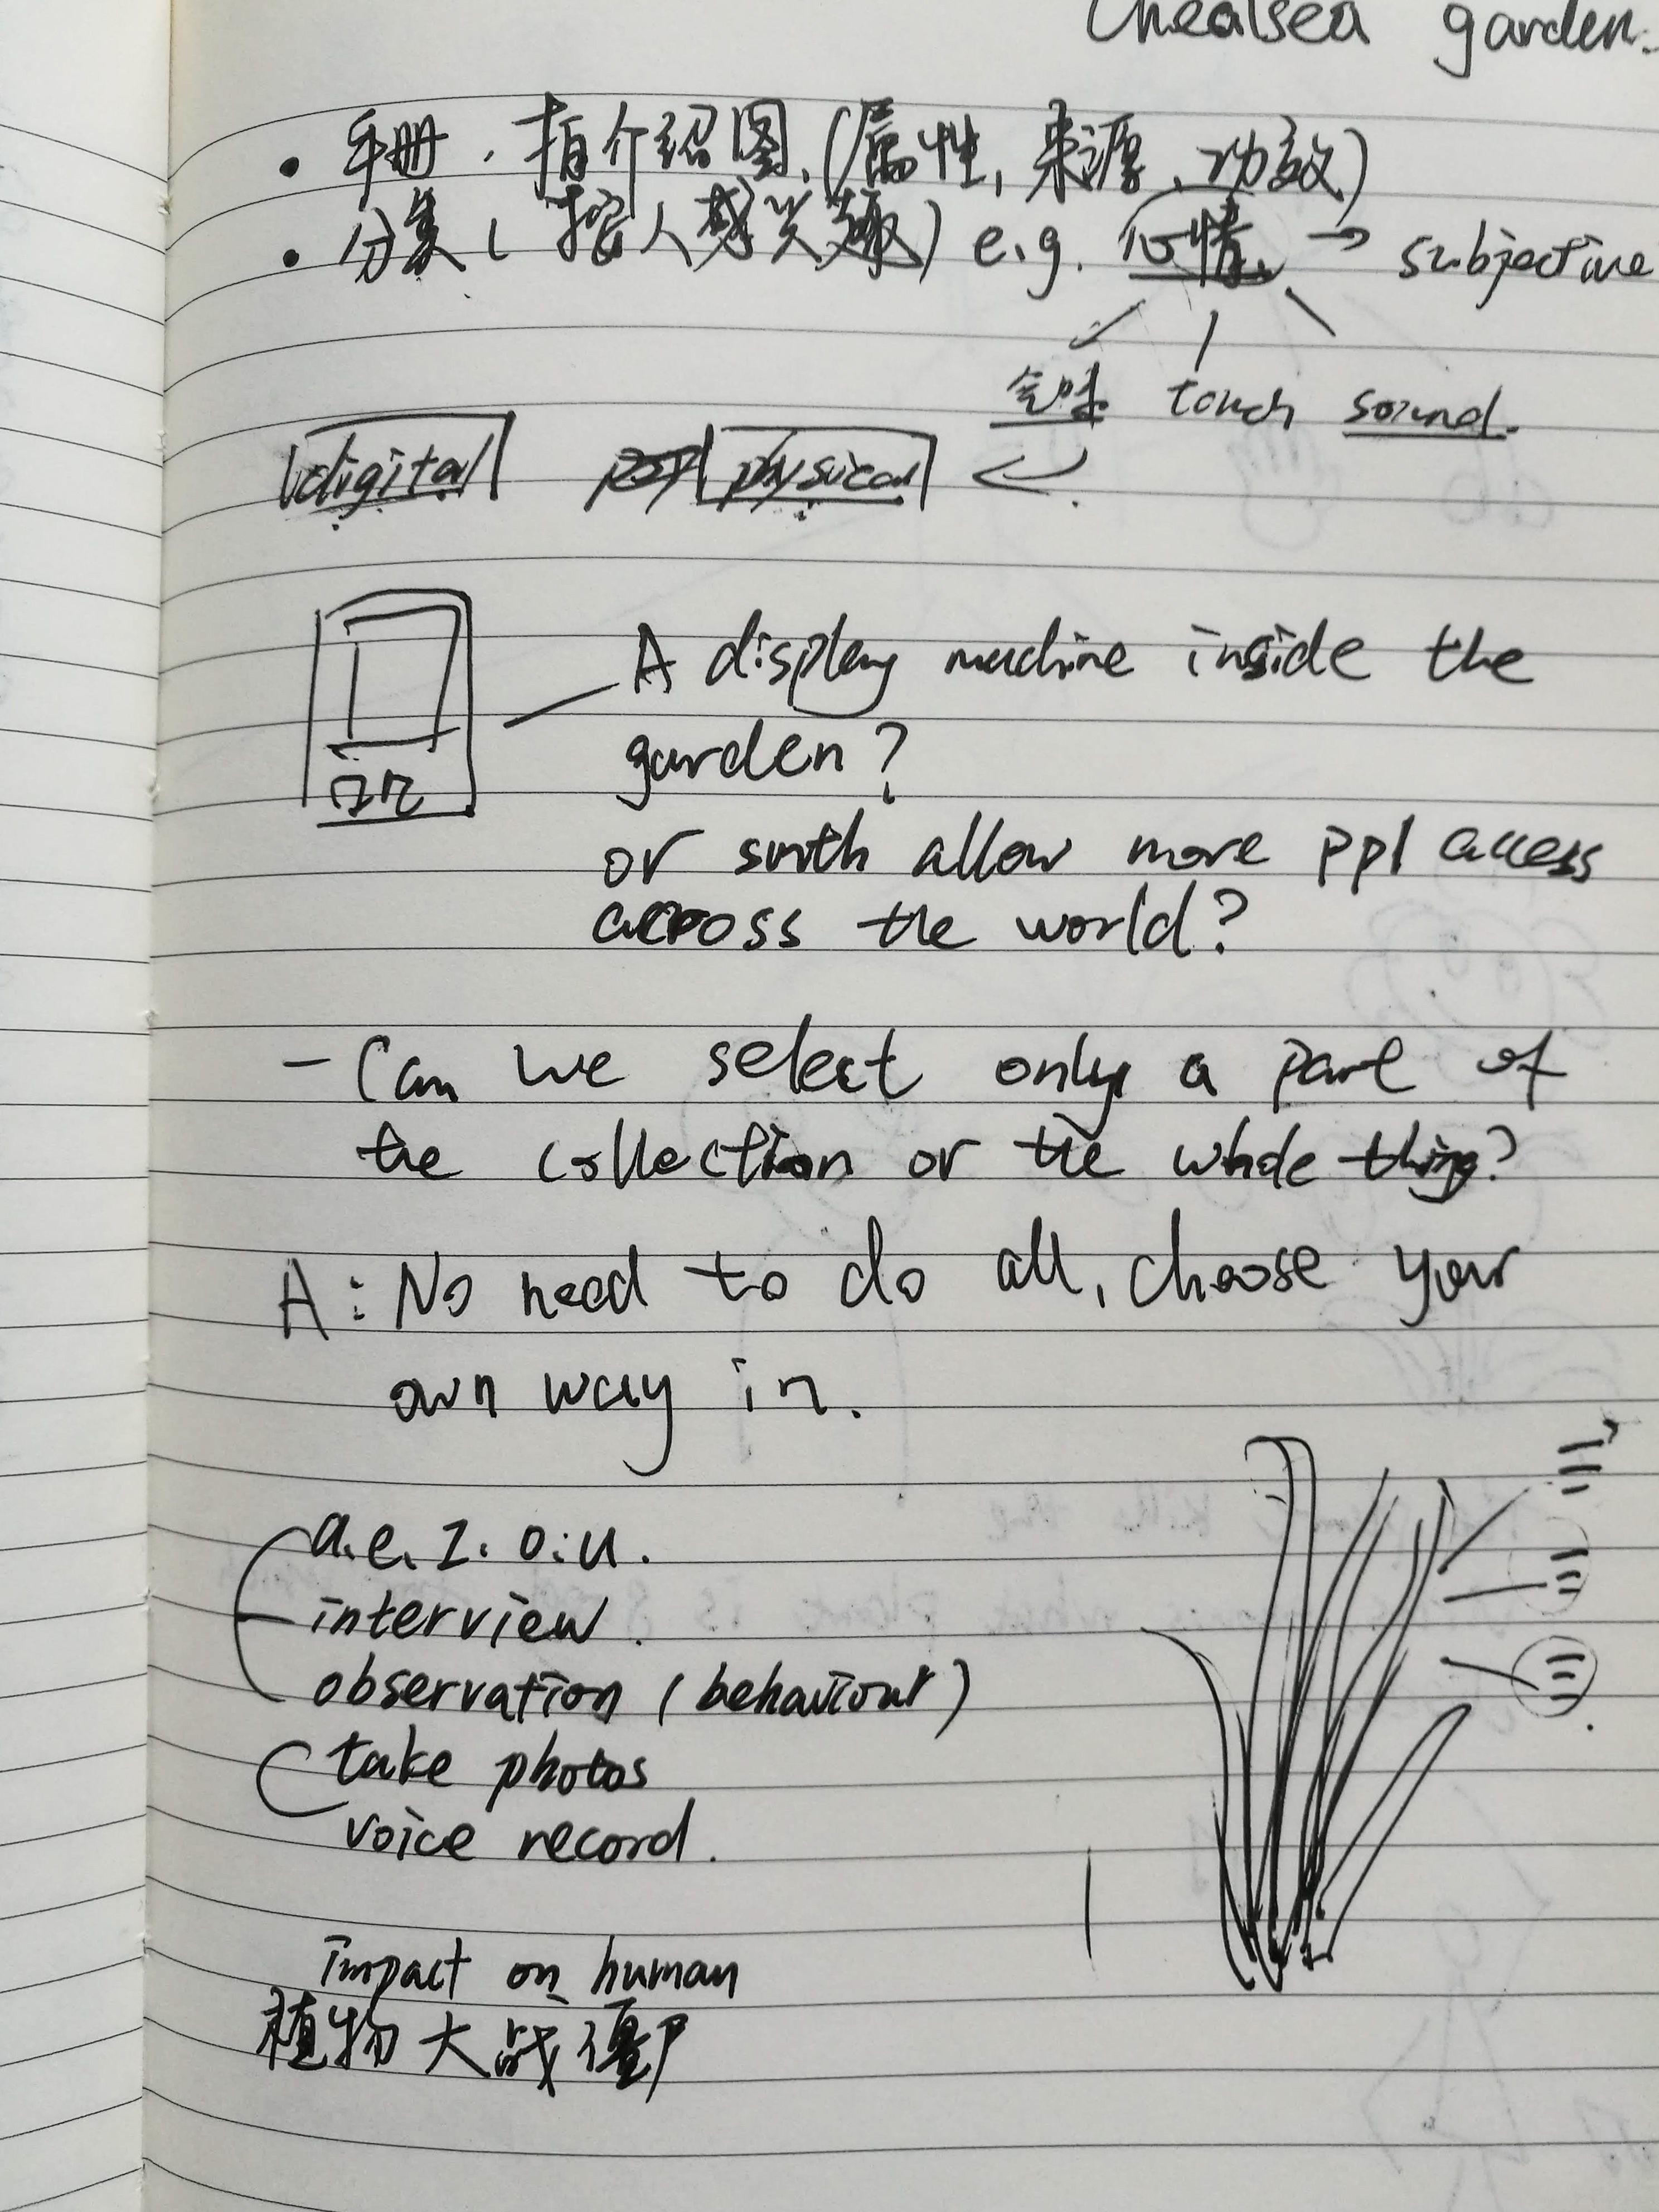 Chealsea garden.
• 手册. 指介绍图, (属性, 来源, 功效)
• 分类 ( 按人感兴趣) e.g. 心情 → subjective
气味 touch sound.
digital physical
A display machine inside the
garden?
or smth allow more ppl access
across the world?
- Can we select only a part of
the collection or the whole thing?
A: No need to do all, choose your
own way in.
a.e.I.o.u.
interview.
observation (behaviour)
take photos
voice record.
impact on human
植物大战僵尸